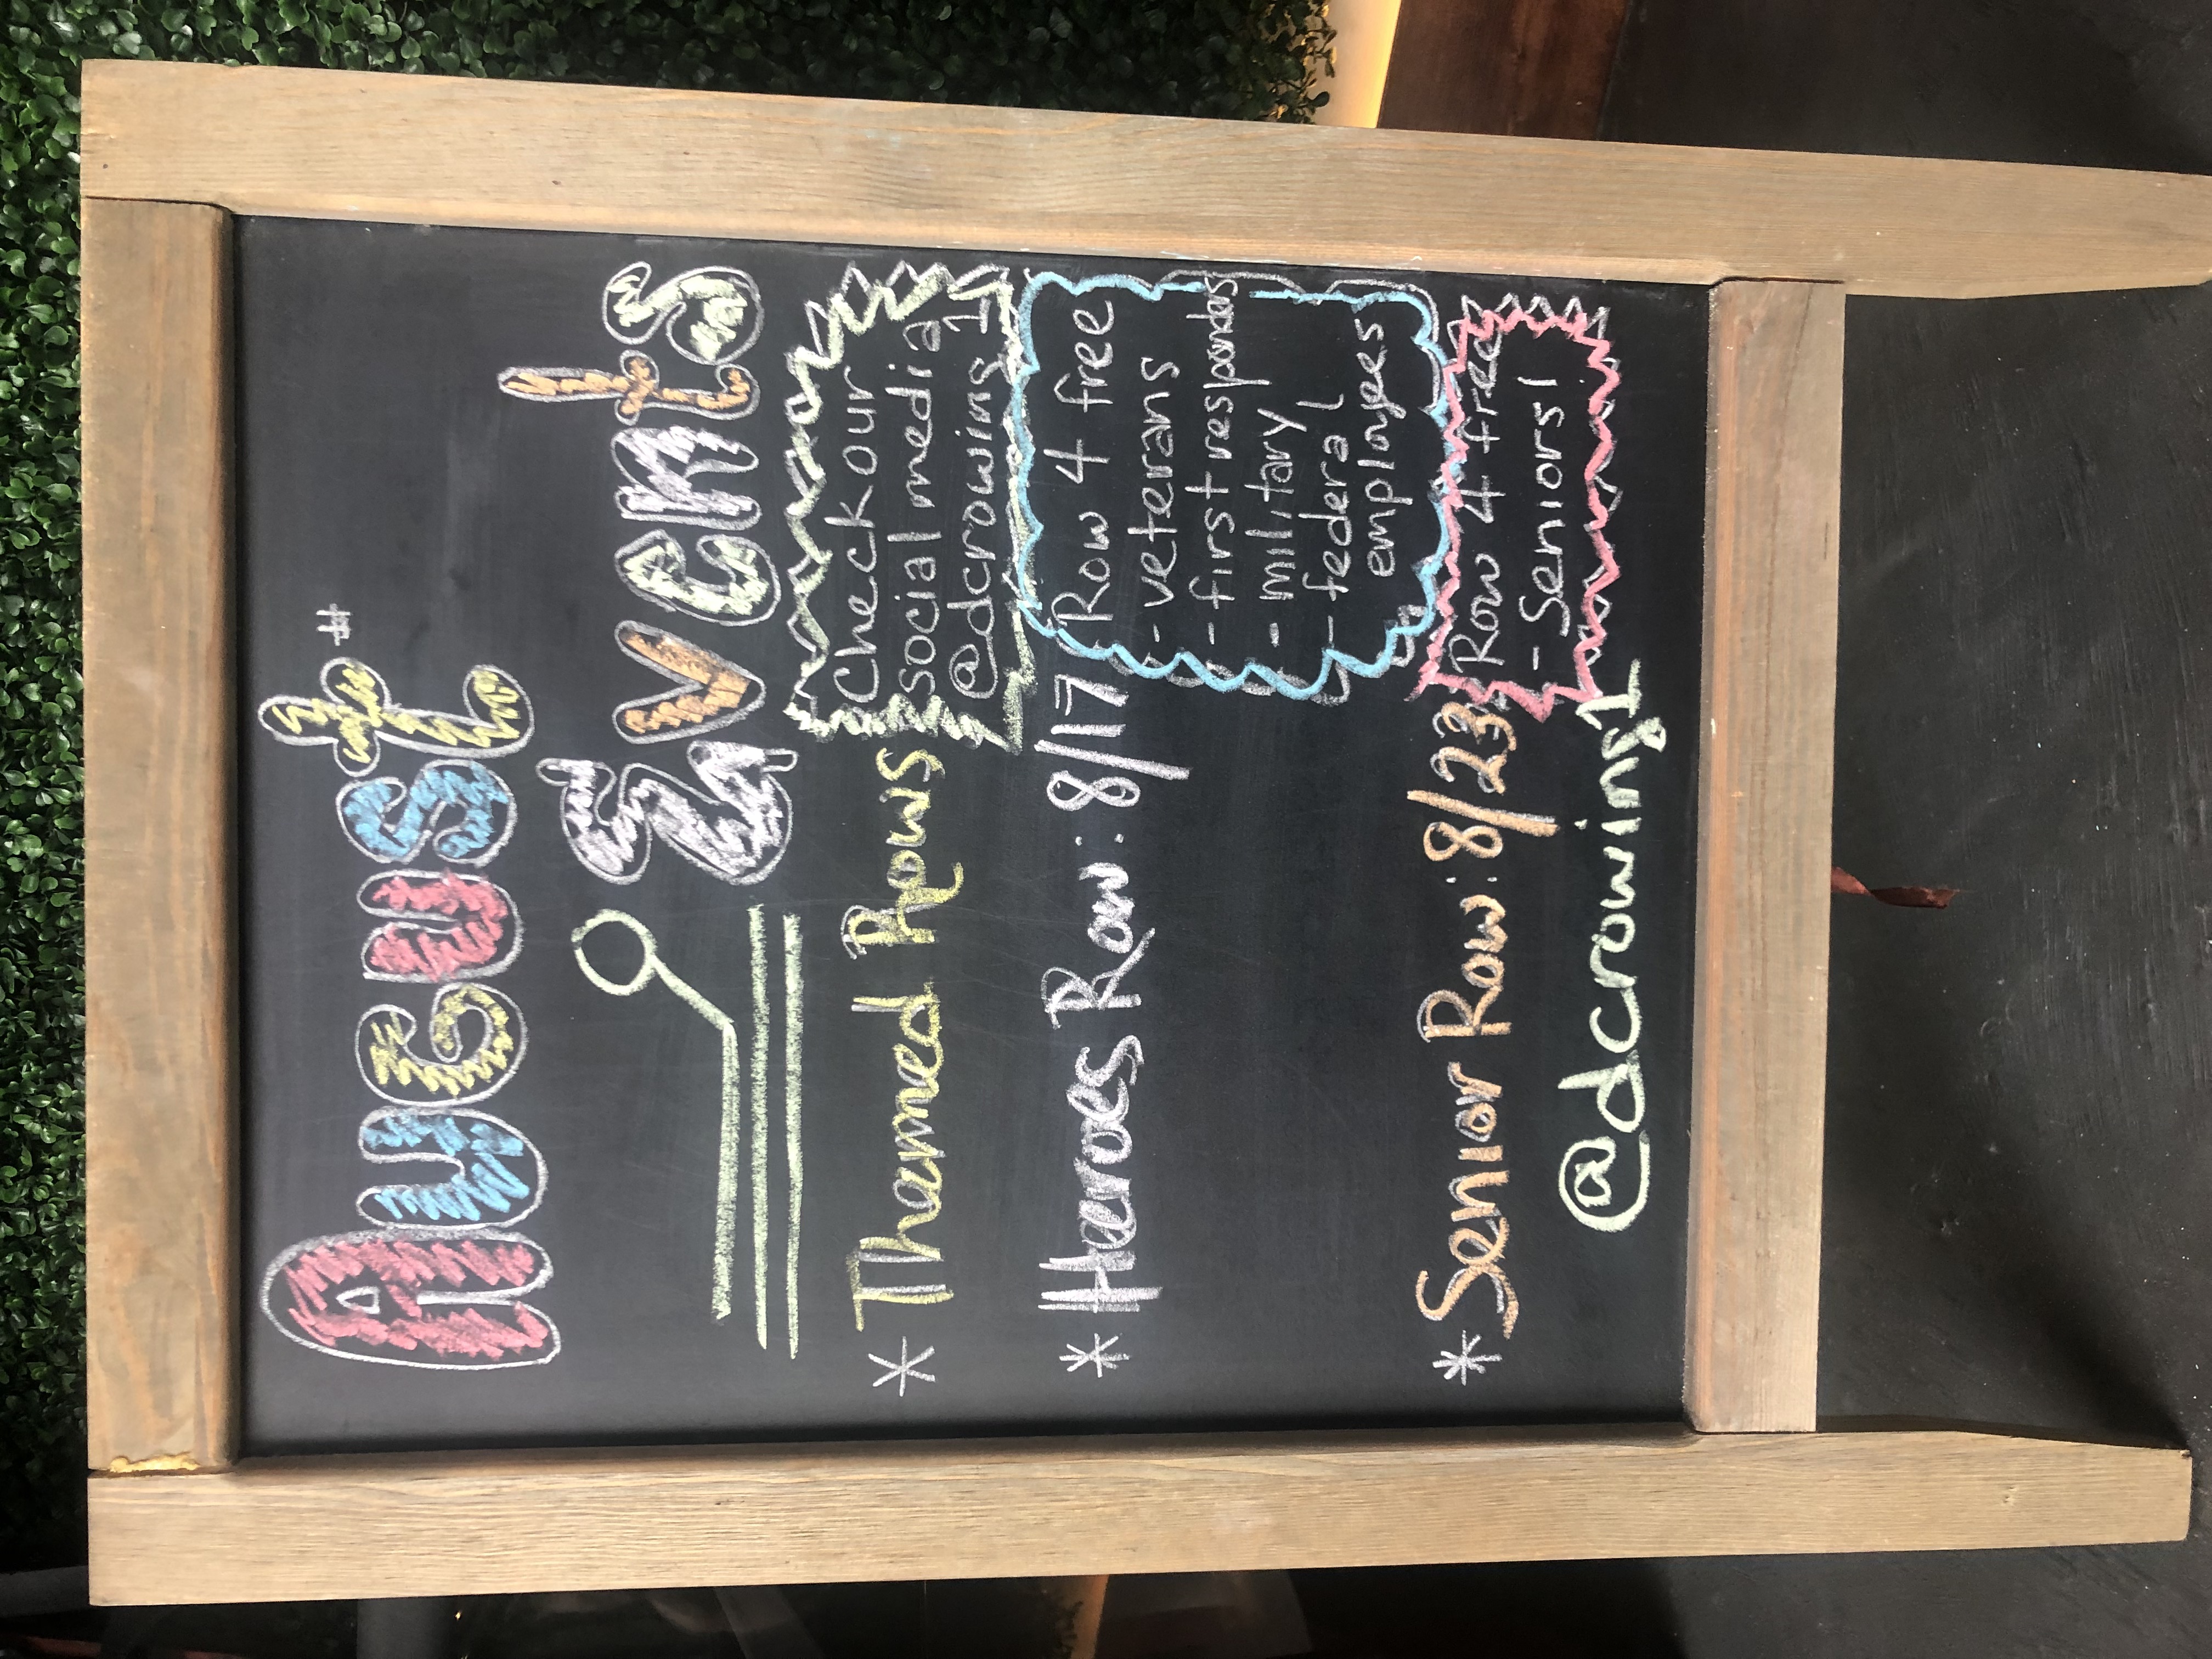 August #
Events
* Themed Rows
Check our
social media
@dcrowing1
* Heroes Row: 8/17
Row 4 free
- veterans
- first responders
- military
- federal
employees
* Senior Row: 8/23
Row 4 free
- Seniors!
@dcrowing1